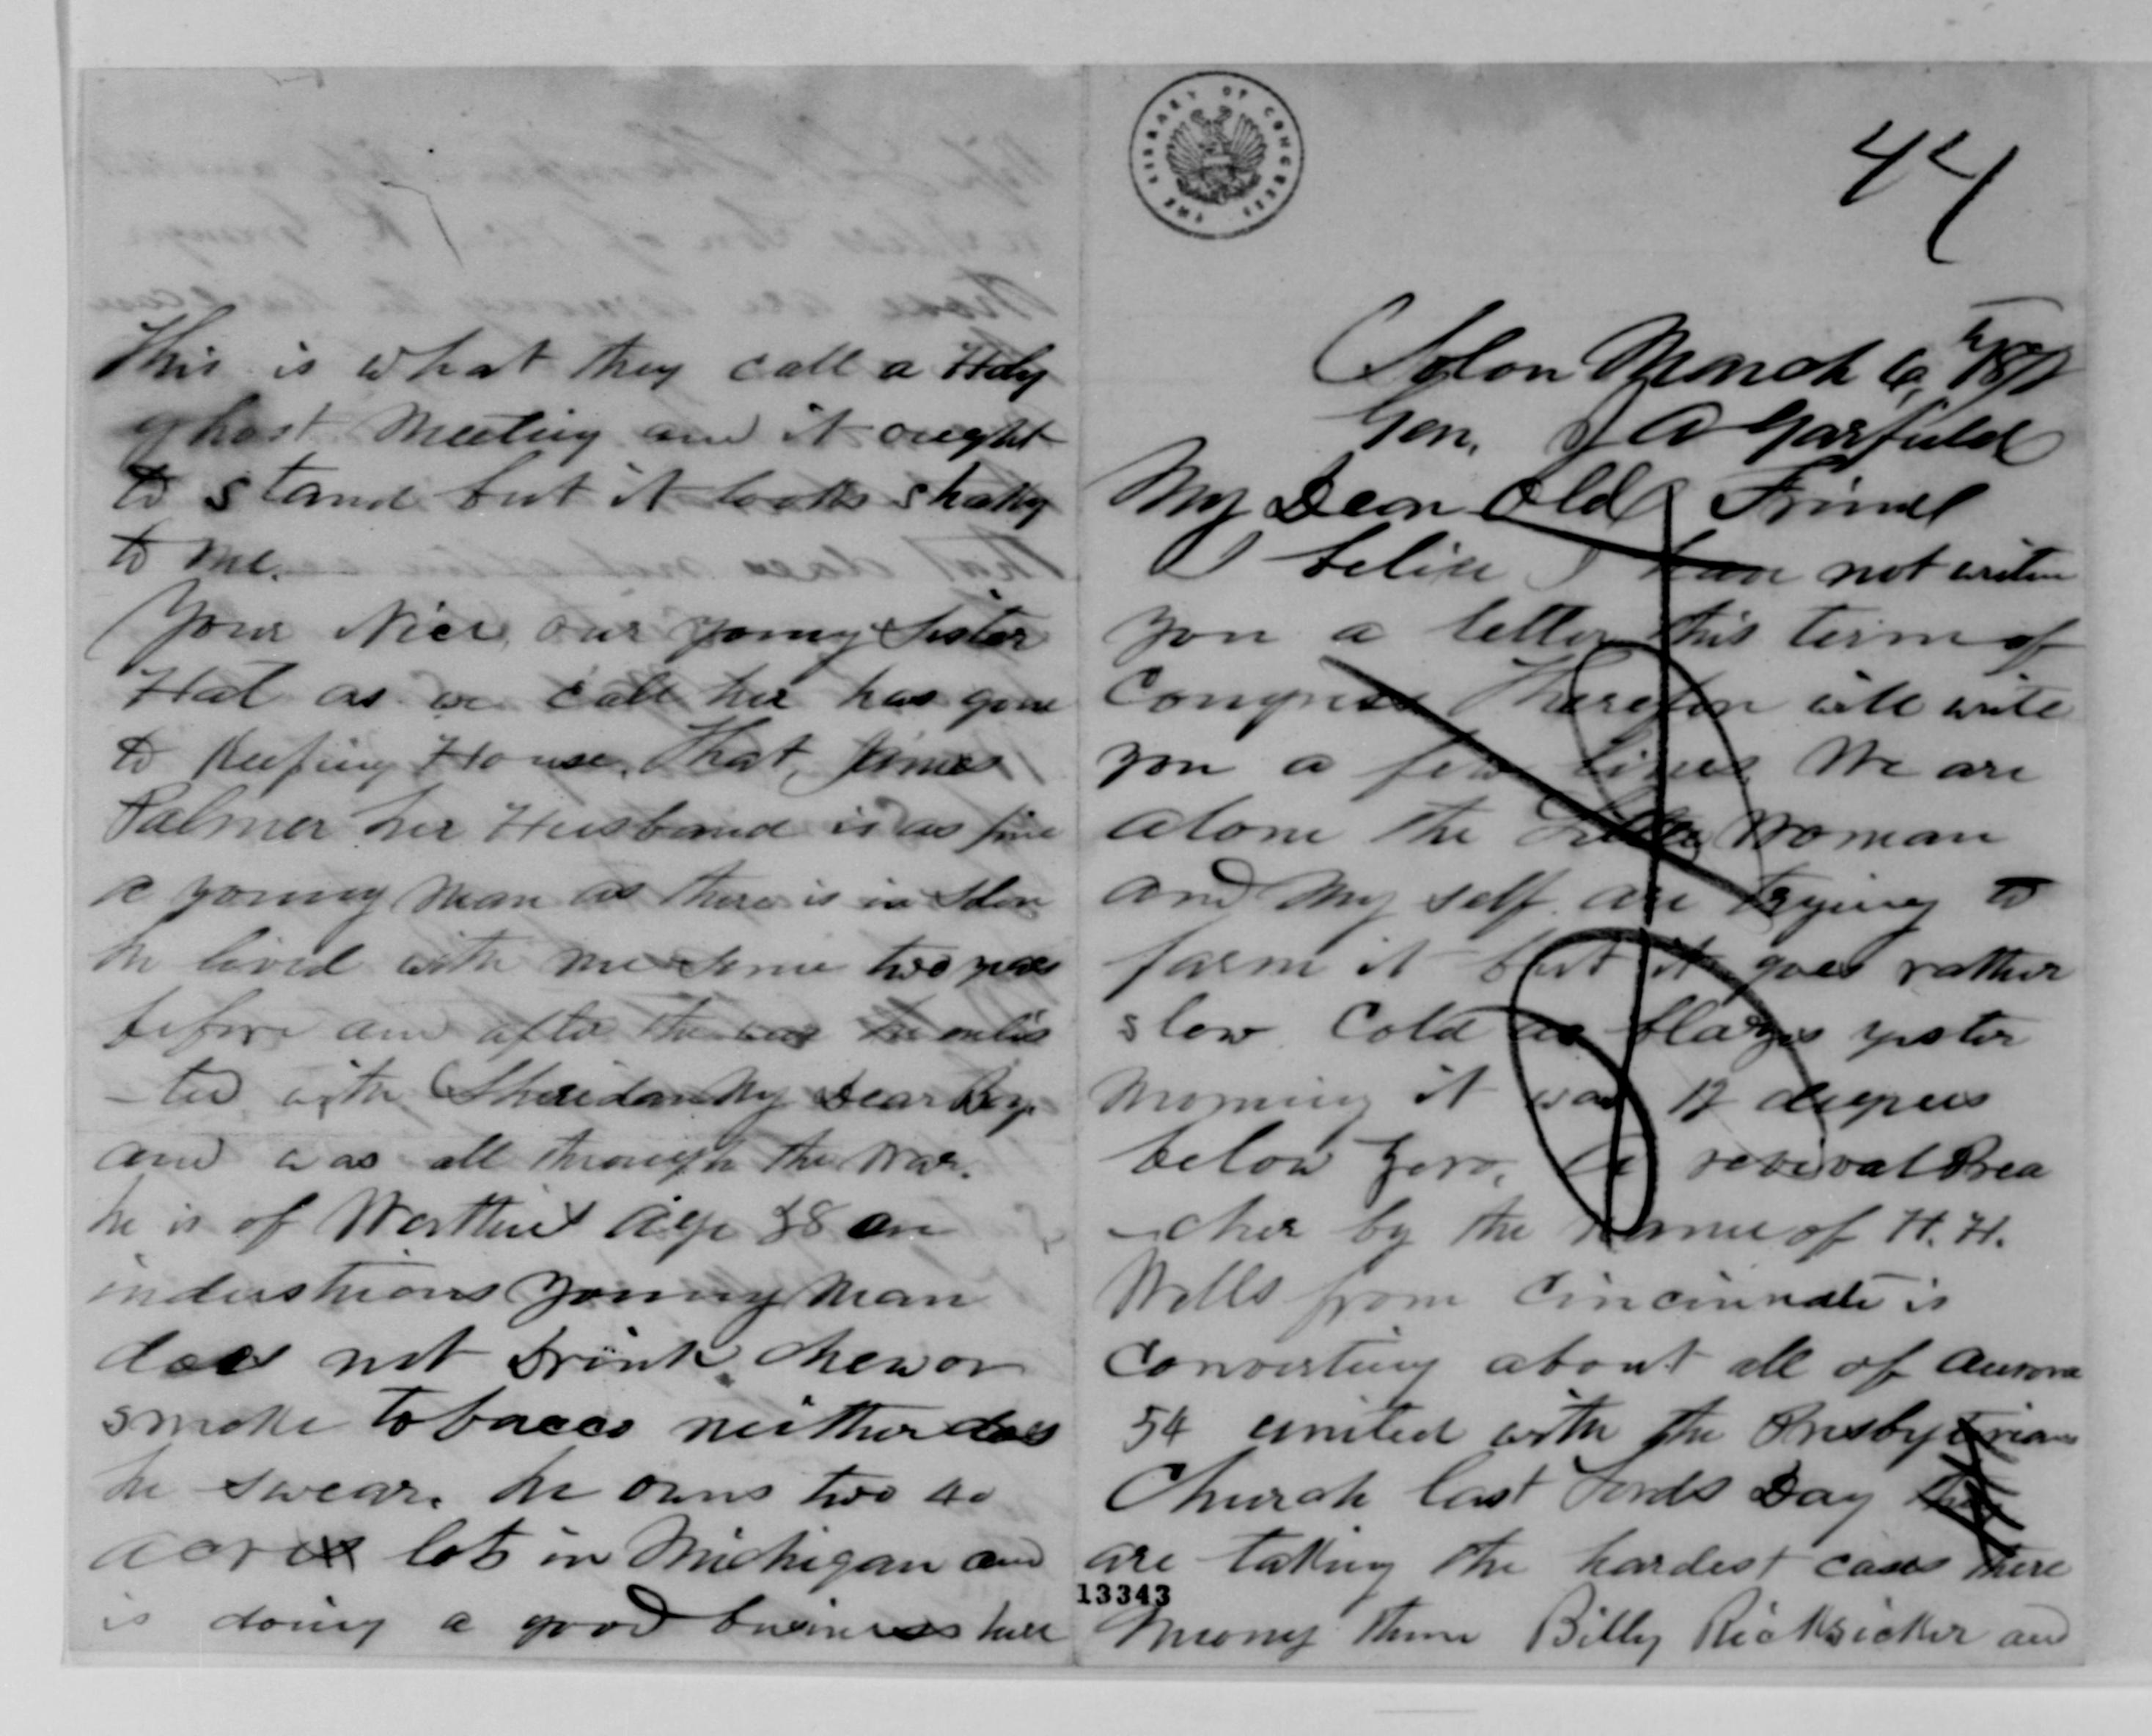 This is what they call a Holy
ghost Meeting and it ought
to stand but it looks shaky
to me.
Your Niece, our young Sister
Hat as we call her has gone
to Keeping House. That, James
Palmer her Husband is as fine
a young man as there is in Solon
he lived with me some two years
before and after the war he enlis
-ted with Sheridan My Dear Boy.
and was all through the War.
he is of Worthie Age 38 an
industrious young man
does not Drink chew or
smoke Tobacco neither does
he swear. he owns two 40
acres lots in Michigan and
is doing a good business here
THE LIBRARY OF CONGRESS
44
Solon March 6,
Gen. J A Garfield
My Dear Old Friend
I belive I have not writen
you a letter this term of
Congress Therefor will write
you a few lines We are
alone the Little Woman
and My self are trying to
farm it but it goes rather
slow Cold as blazes yester
morning it was 12 degrees
below Zero, A revival Prea
-cher by the name of H. H.
Wells from Cincinnati is
Converting about all of Aurora
54 united with the Presbyterian
Church last Lords Day they
are taking the hardest cases there
13343
Mong them Billy Ricksicker and